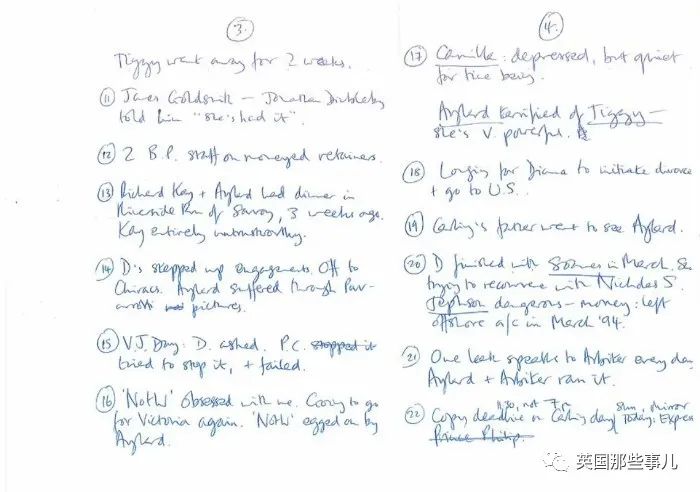 3.
Tiggy went away for 2 weeks.
⑪ James Goldsmith – Jonathan Dimbleby
told him "she's had it".
⑫ 2 B.P. staff on moneyed retainers.
⑬ Richard Kay + Aylard had dinner in
Riverside Rm of Savoy, 3 weeks ago.
Kay entirely untrustworthy.
⑭ D's stepped up engagements. Off to
Chiracs. Aylard suffered through Pav-
arotti pictures.
⑮ V.J. Day: D. asked. P.C. stopped it
tried to stop it, + failed.
⑯ 'NoTW' obsessed with me. Going to go
for Victoria again. 'NoTW' egged on by
Aylard.
4.
⑰ Camilla: depressed, but quiet
for time being.
Aylard terrified of Tiggy –
she's v. powerful.
⑱ Longing for Diana to initiate divorce
+ go to U.S.
⑲ Carling's father went to see Aylard.
⑳ D finished with Soames in March. Is
trying to reconvene with Nicholas S.
Jephson dangerous – money: left
offshore a/c in March '94.
㉑ One leak speaks to Arbiter every day
Aylard + Arbiter ran it.
11.30, not 7
㉒ Copy deadline on Carling day Sun, Mirror
Today: Express
Prince Philip.
英国那些事儿